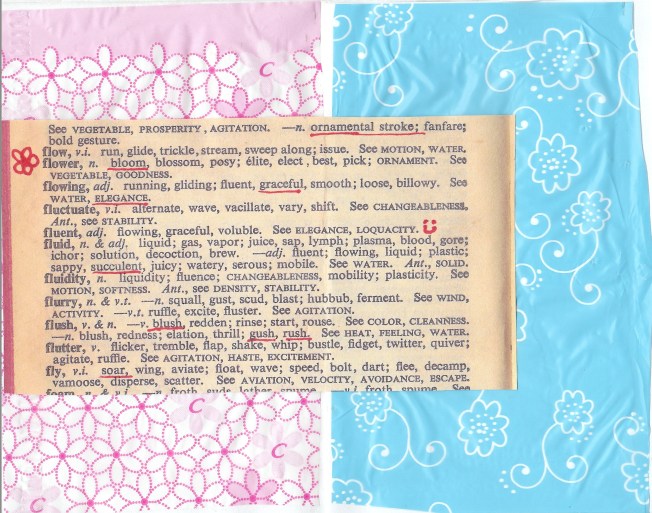 See VEGETABLE, PROSPERITY, AGITATION. —n. ornamental stroke; fanfare;
bold gesture.
flow, v.i. run, glide, trickle, stream, sweep along; issue. See MOTION, WATER.
flower, n. bloom, blossom, posy; élite, elect, best, pick; ORNAMENT. See
VEGETABLE, GOODNESS.
flowing, adj. running, gliding; fluent, graceful, smooth; loose, billowy. See
WATER, ELEGANCE.
fluctuate, v.i. alternate, wave, vacillate, vary, shift. See CHANGEABLENESS,
Ant., see STABILITY.
fluent, adj. flowing, graceful, voluble. See ELEGANCE, LOQUACITY.
fluid, n. & adj. liquid; gas, vapor; juice, sap, lymph; plasma, blood, gore;
ichor; solution, decoction, brew. —adj. fluent; flowing, liquid; plastic;
sappy, succulent, juicy; watery, serous; mobile. See WATER. Ant., SOLID.
fluidity, n. liquidity; fluence; CHANGEABLENESS, mobility; plasticity. See
MOTION, SOFTNESS. Ant., see DENSITY, STABILITY.
flurry, n. & v.t. —n. squall, gust, scud, blast; hubbub, ferment. See WIND,
ACTIVITY. —v.t. ruffle, excite, fluster. See AGITATION.
flush, v. & n. —v. blush, redden; rinse; start, rouse. See COLOR, CLEANNESS.
—n. blush, redness; elation, thrill; gush, rush. See HEAT, FEELING, WATER.
flutter, v. flicker, tremble, flap, shake, whip; bustle, fidget, twitter, quiver;
agitate, ruffle. See AGITATION, HASTE, EXCITEMENT.
fly, v.i. soar, wing, aviate; float, wave; speed, bolt, dart; flee, decamp,
vamoose, disperse, scatter. See AVIATION, VELOCITY, AVOIDANCE, ESCAPE.
foam, n. & v.i. —n. froth, suds, lather, spume. —v.i. froth, spume. See
C
C
C
C